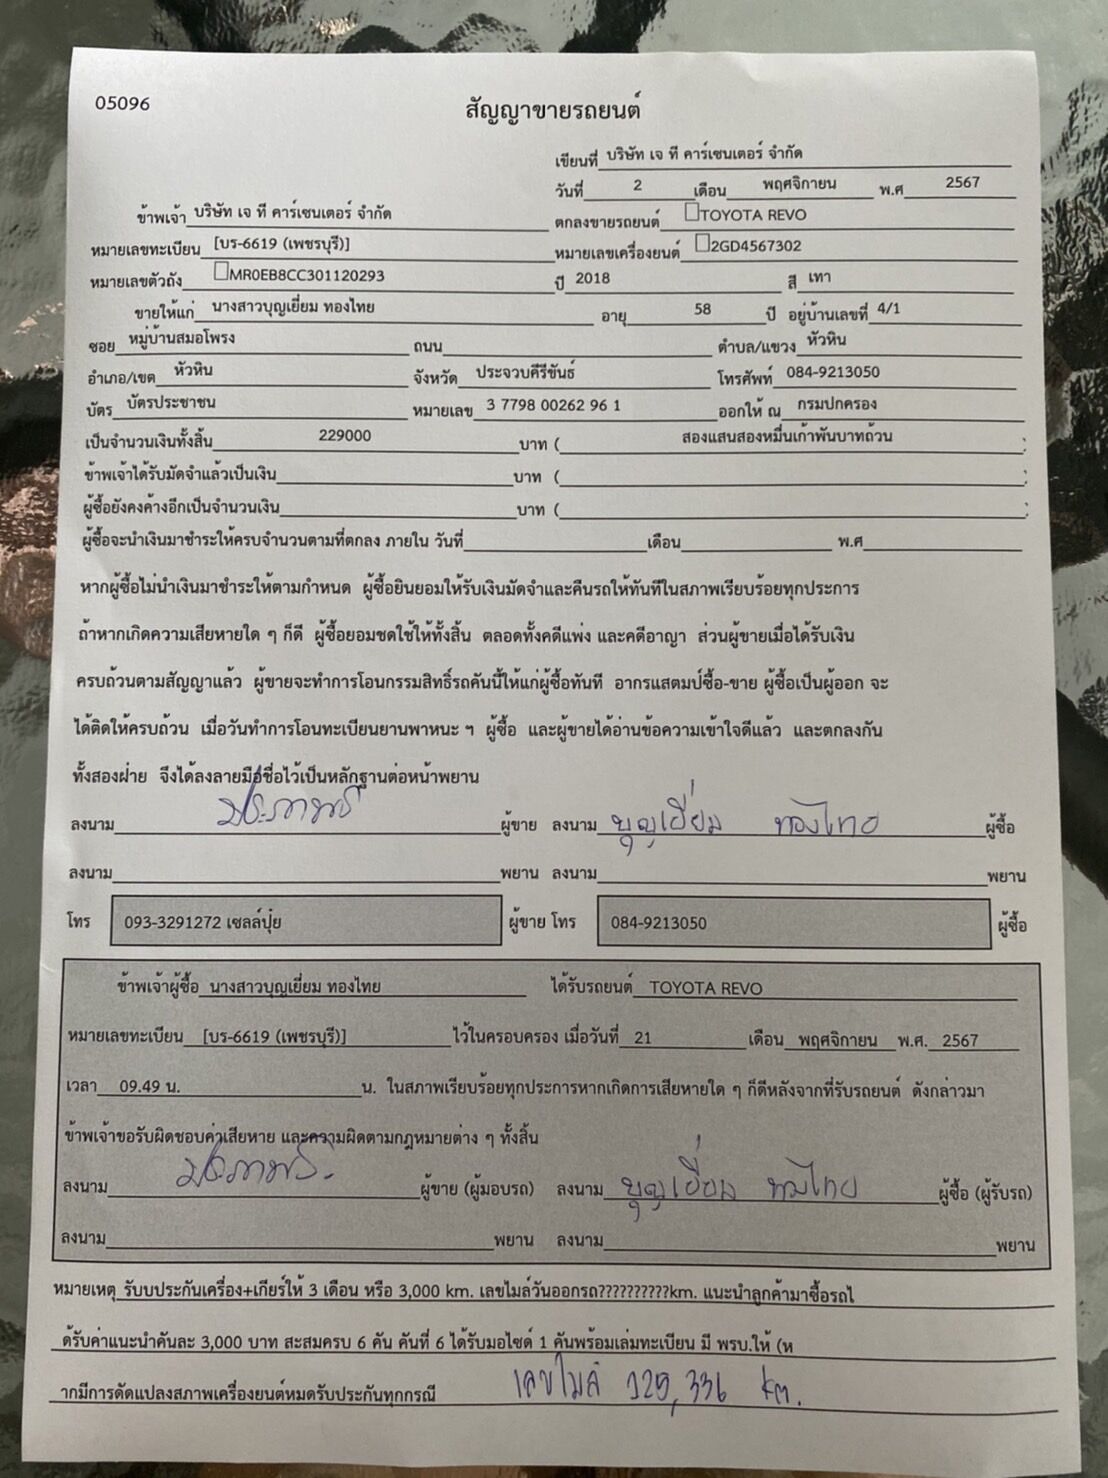 05096
สัญญาขายรถยนต์
เขียนที่ บริษัท เจ ที คาร์เซนเตอร์ จำกัด
วันที่ 2 เดือน พฤศจิกายน พ.ศ 2567
ข้าพเจ้า บริษัท เจ ที คาร์เซนเตอร์ จำกัด ตกลงขายรถยนต์ TOYOTA REVO
หมายเลขทะเบียน [บร-6619 (เพชรบุรี)] หมายเลขเครื่องยนต์ 2GD4567302
หมายเลขตัวถัง MR0EB8CC301120293 ปี 2018 สี เทา
ขายให้แก่ นางสาวบุญเยี่ยม ทองไทย อายุ 58 ปี อยู่บ้านเลขที่ 4/1
ซอย หมู่บ้านสมอโพรง ถนน ตำบล/แขวง หัวหิน
อำเภอ/เขต หัวหิน จังหวัด ประจวบคีรีขันธ์ โทรศัพท์ 084-9213050
บัตร บัตรประชาชน หมายเลข 3 7798 00262 96 1 ออกให้ ณ กรมปกครอง
เป็นจำนวนเงินทั้งสิ้น 229000 บาท ( สองแสนสองหมื่นเก้าพันบาทถ้วน )
ข้าพเจ้าได้รับมัดจำแล้วเป็นเงิน บาท ( )
ผู้ซื้อยังคงค้างอีกเป็นจำนวนเงิน บาท ( )
ผู้ซื้อจะนำเงินมาชำระให้ครบจำนวนตามที่ตกลง ภายใน วันที่ เดือน พ.ศ
หากผู้ซื้อไม่นำเงินมาชำระให้ตามกำหนด ผู้ซื้อยินยอมให้รับเงินมัดจำและคืนรถให้ทันทีในสภาพเรียบร้อยทุกประการ
ถ้าหากเกิดความเสียหายใด ๆ ก็ดี ผู้ซื้อยอมชดใช้ให้ทั้งสิ้น ตลอดทั้งคดีแพ่ง และคดีอาญา ส่วนผู้ขายเมื่อได้รับเงิน
ครบถ้วนตามสัญญาแล้ว ผู้ขายจะทำการโอนกรรมสิทธิ์รถคันนี้ให้แก่ผู้ซื้อทันที อากรแสตมป์ซื้อ-ขาย ผู้ซื้อเป็นผู้ออก จะ
ได้ติดให้ครบถ้วน เมื่อวันทำการโอนทะเบียนยานพาหนะ ฯ ผู้ซื้อ และผู้ขายได้อ่านข้อความเข้าใจดีแล้ว และตกลงกัน
ทั้งสองฝ่าย จึงได้ลงลายมือชื่อไว้เป็นหลักฐานต่อหน้าพยาน
ลงนาม ผู้ขาย ลงนาม บุญเยี่ยม ทองไทย ผู้ซื้อ
ลงนาม พยาน ลงนาม พยาน
โทร 093-3291272 เซลล์ปุ๋ย ผู้ขาย โทร 084-9213050 ผู้ซื้อ
ข้าพเจ้าผู้ซื้อ นางสาวบุญเยี่ยม ทองไทย ได้รับรถยนต์ TOYOTA REVO
หมายเลขทะเบียน [บร-6619 (เพชรบุรี)] ไว้ในครอบครอง เมื่อวันที่ 21 เดือน พฤศจิกายน พ.ศ. 2567
เวลา 09.49 น. น. ในสภาพเรียบร้อยทุกประการหากเกิดการเสียหายใด ๆ ก็ดีหลังจากที่รับรถยนต์ ดังกล่าวมา
ข้าพเจ้าขอรับผิดชอบค่าเสียหาย และความผิดตามกฎหมายต่าง ๆ ทั้งสิ้น
ลงนาม ผู้ขาย (ผู้มอบรถ) ลงนาม บุญเยี่ยม ทองไทย ผู้ซื้อ (ผู้รับรถ)
ลงนาม พยาน ลงนาม พยาน
หมายเหตุ รับบประกันเครื่อง+เกียร์ให้ 3 เดือน หรือ 3,000 km. เลขไมล์วันออกรถ??????????km. แนะนำลูกค้ามาซื้อรถไ
ด้รับค่าแนะนำคันละ 3,000 บาท สะสมครบ 6 คัน คันที่ 6 ได้รับมอไซด์ 1 คันพร้อมเล่มทะเบียน มี พรบ.ให้ (ห
ากมีการดัดแปลงสภาพเครื่องยนต์หมดรับประกันทุกกรณี เลขไมล์ 129,336 km.